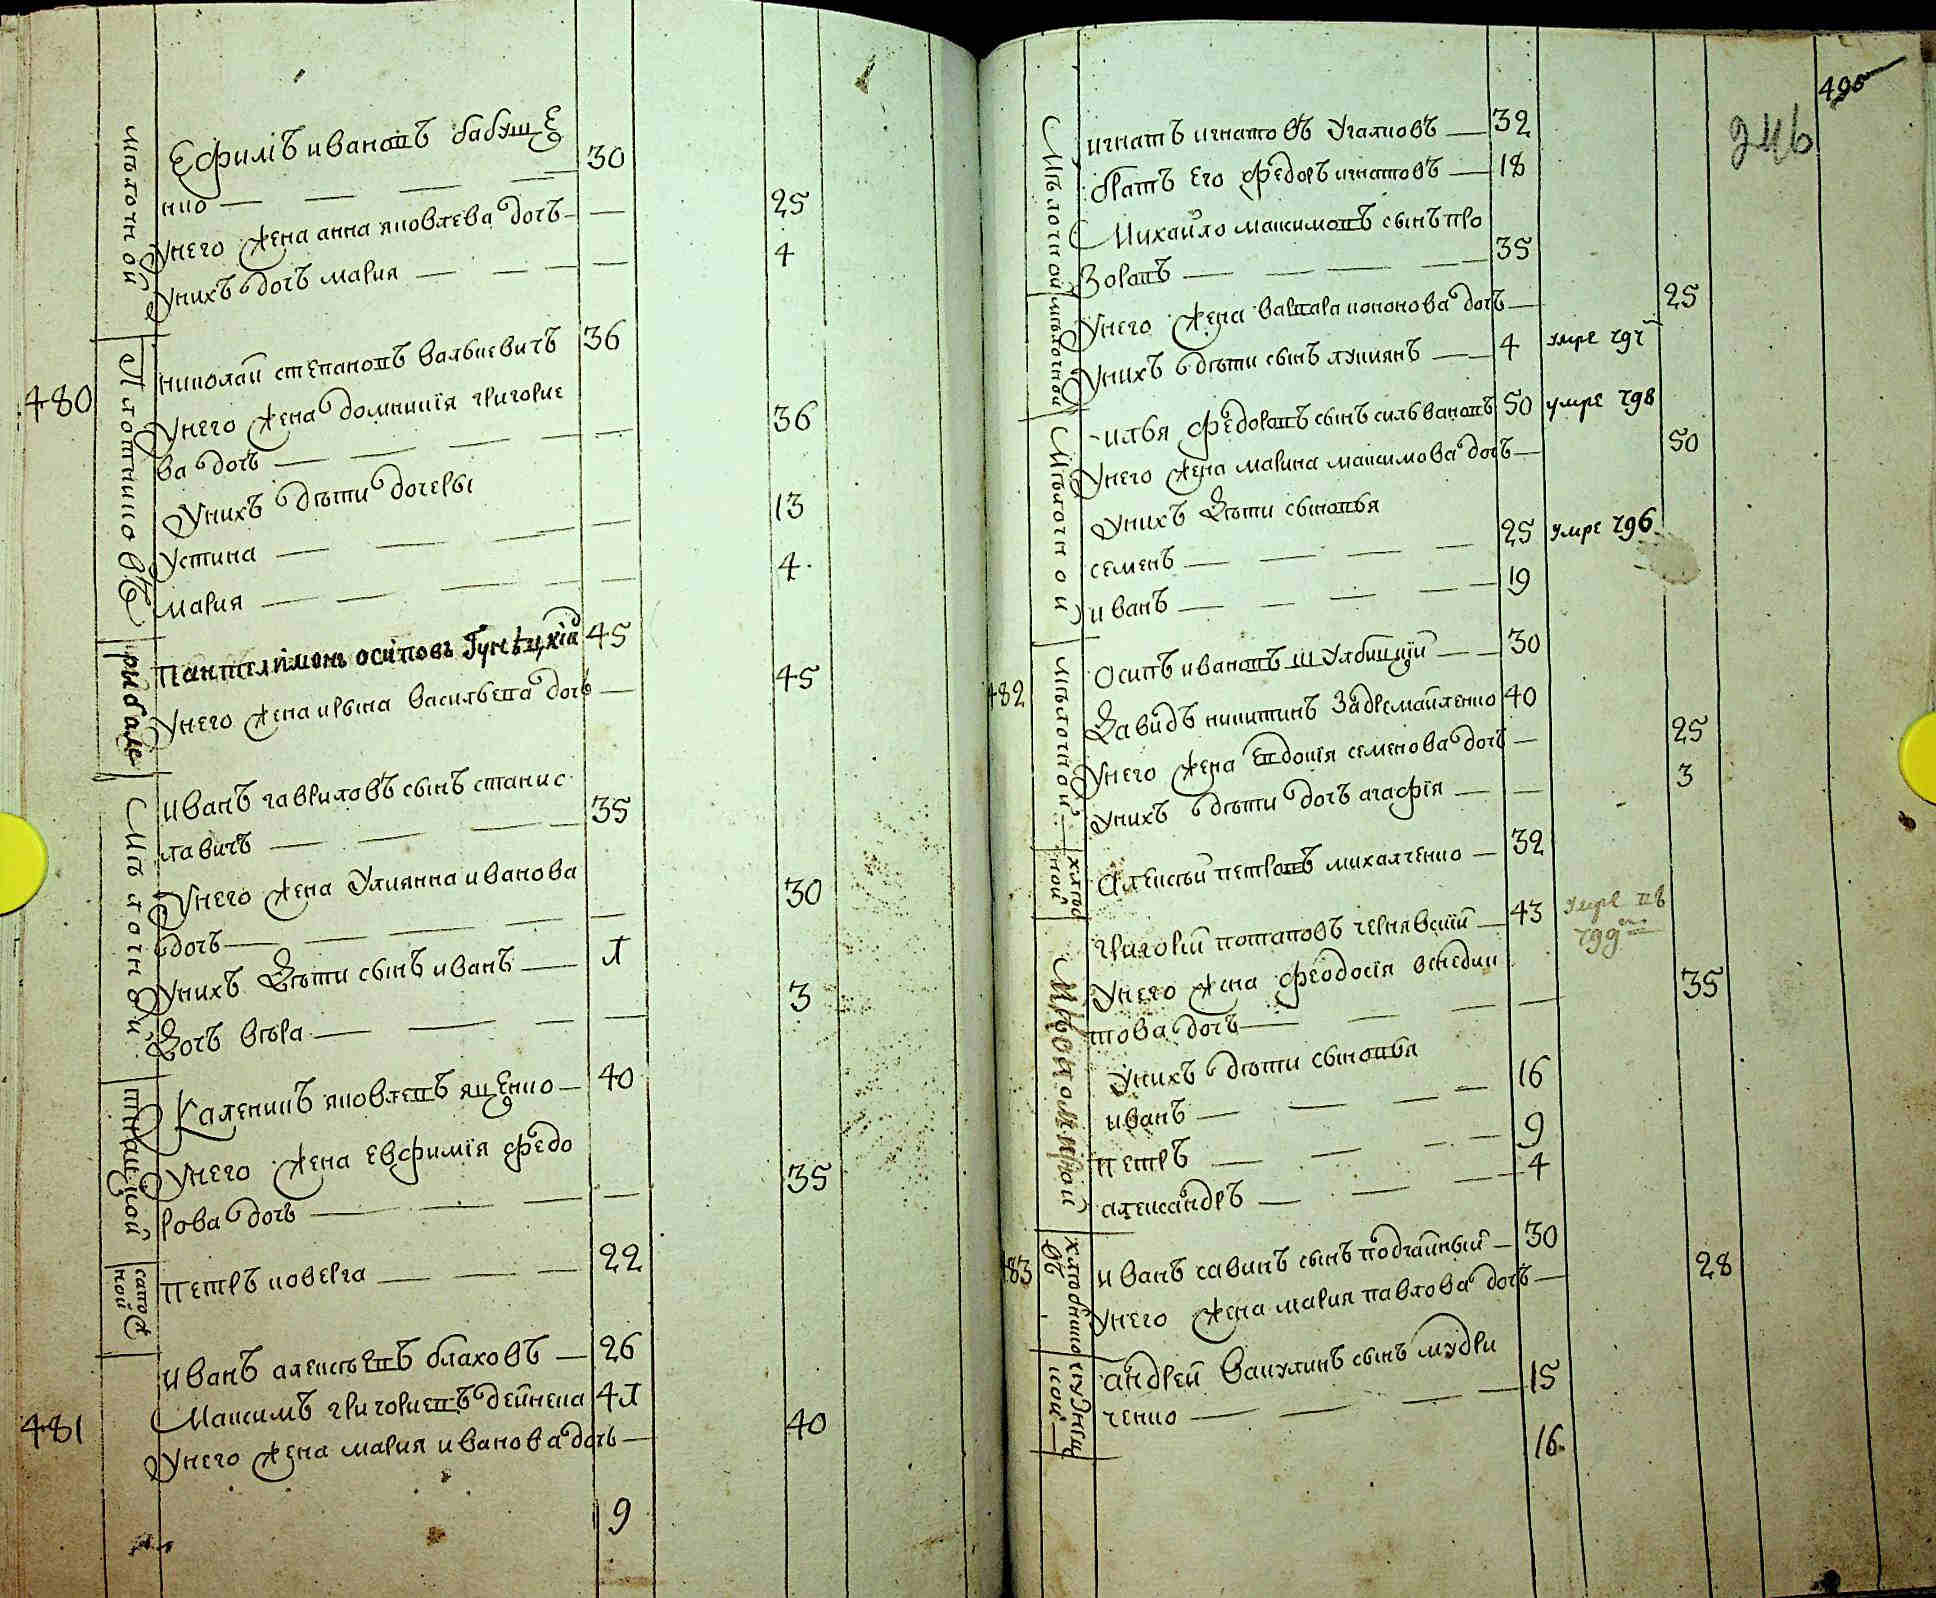 мѣлочной
Ефимъ ивановъ бабуще
нко 30
унего жена анна яковлева дочь 25
унихъ дочь мария 4
480
Плотниковъ
николай степановъ валькевичъ 36
унего жена домникія григорие
ва дочь 36
Унихъ дѣти дочеры
устина 13
мария 4
рибале
Пантелимонъ осиповъ 45
унего жена ирына васильева дочь 45
Мѣлочной
иванъ гавриловъ сынъ станис
лавичъ 35
Унего жена Улиянна иванова
дочь 30
Унихъ дѣти сынъ иванъ 1
дочь вѣра 3
Каленикъ яковлевъ ященко 40
Унего жена Евфимія федо
рова дочь 35
сапож
ной
петръ коверга 22
иванъ алексѣевъ блаховъ 26
481
Максимъ григориевъ дейнека 41
Унего жена мария иванова дочь 40
9
495
246
Мѣлочной
игнатъ игнатовъ Угалковъ 32
братъ Его федоръ игнатовъ 18
Михайло максимовъ сынъ про
зоровъ 35
мѣлочной
Унего жена варвара кононова дочь 25
Унихъ дѣти сынъ лукиянъ 4 умре 797
Мѣлочной
илья федоровъ сынъ сильвановъ 50 умре 798
Унего жена марина максимова дочь 50
Унихъ дѣти сыновья
семенъ 25 умре 796
иванъ 19
мѣлочной
Осипъ ивановъ шулбицкій 30
482
Давидъ никитинъ Задремайленко 40
унего жена Евдокія семенова дочь 25
унихъ дѣти дочь агафія 3
хлѣб
ной
Алексѣй петровъ михалченко 32
григорий потаповъ чернявский 43 умре въ
799
Унего жена феодосія
това дочь 35
унихъ дѣти сыновья
иванъ 16
петръ 9
александръ 4
483
хлѣбнико
въ
иванъ савинъ сынъ подчайный 30
Унего жена мария павлова дочь 28
кузнец
кой
андрей вакулинъ сынъ мудри
ченко 15
16